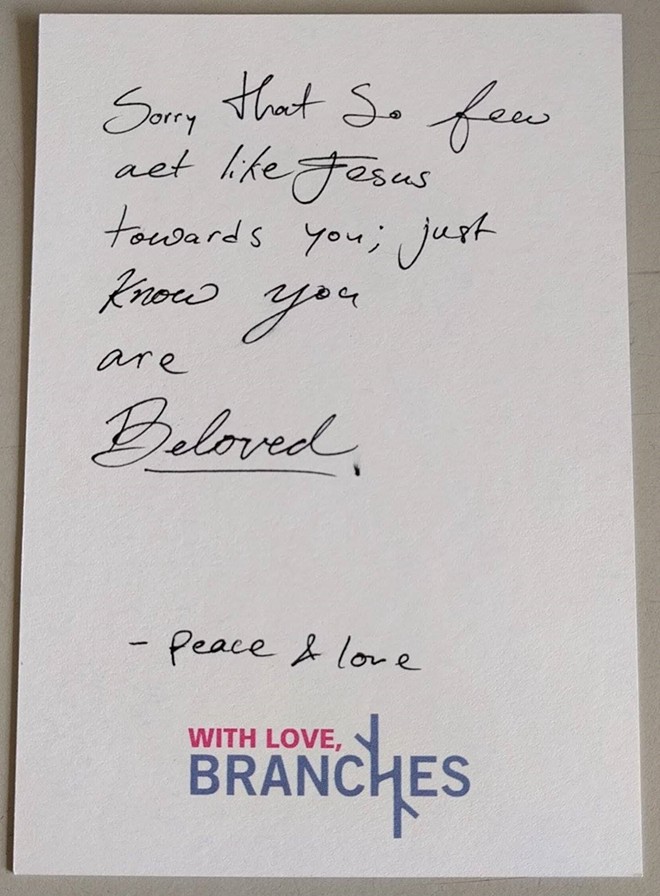 Sorry that So few
act like Jesus
towards you; just
Know you
are
Beloved.
- peace & love
WITH LOVE,
BRANCHES